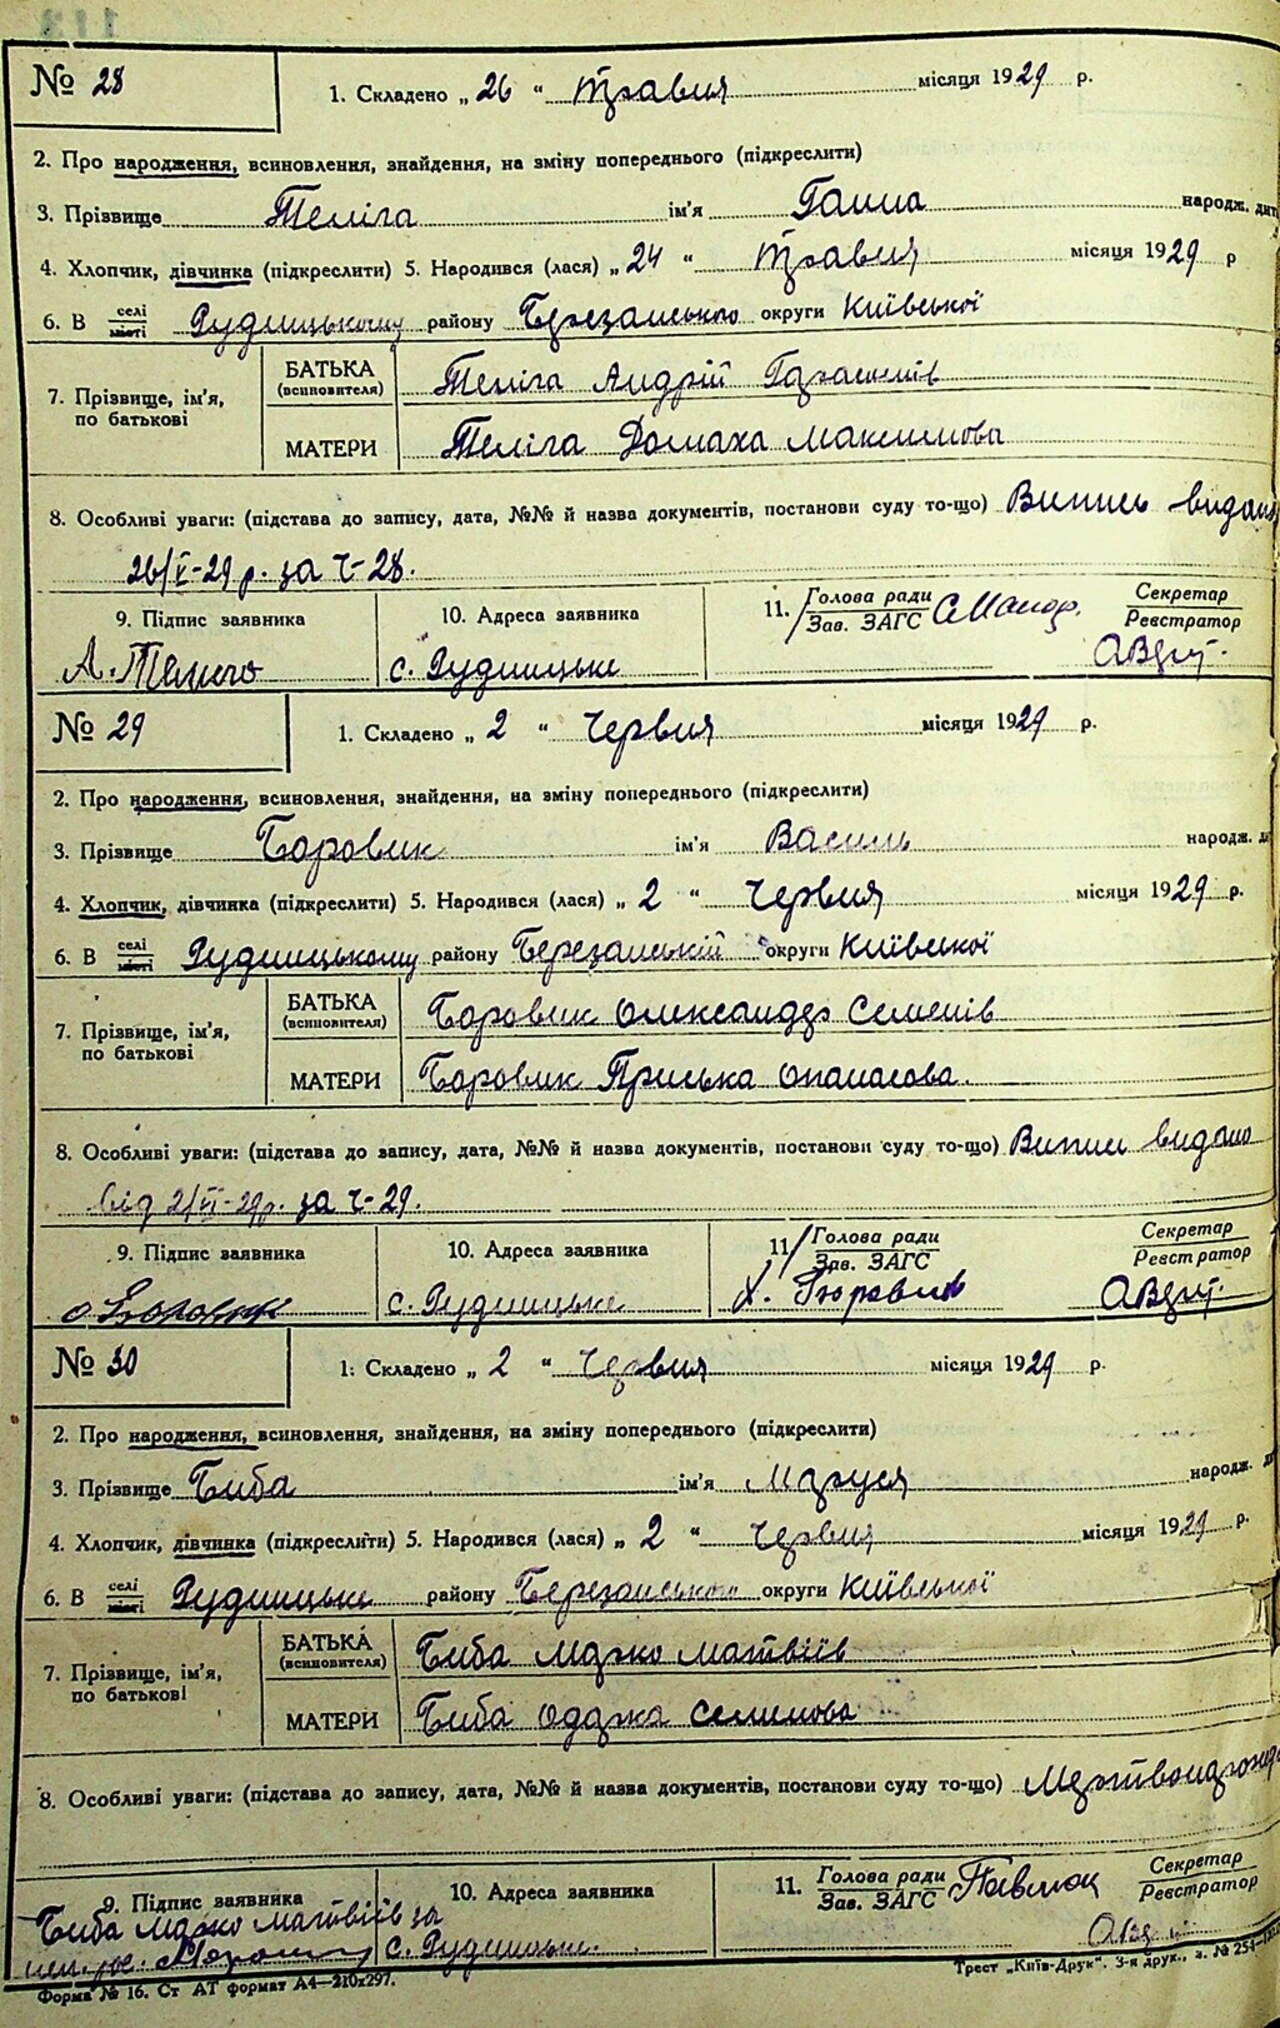 № 28
1. Складено „ 26 “ травня місяця 1929 р.
2. Про народження, всиновлення, знайдення, на зміну попереднього (підкреслити)
3. Прізвище Теліга ім'я Ганна народж. дит
4. Хлопчик, дівчинка (підкреслити) 5. Народився (лася) „ 24 “ травня місяця 1929 р
6. В селі місті Рудницькому району Березанського округи Київської
7. Прізвище, ім'я, по батькові
БАТЬКА (всиновителя) Теліга Андрій Гарасимів
МАТЕРИ Теліга Домаха Максимова
8. Особливі уваги: (підстава до запису, дата, №№ й назва документів, постанови суду то-що) Випись видано
26/V-29 р. за ч-28.
9. Підпис заявника 10. Адреса заявника 11. Голова ради Зав. ЗАГС Секретар Реєстратор
с. Рудницьке
№ 29
1. Складено „ 2 “ Червня місяця 1929 р.
2. Про народження, всиновлення, знайдення, на зміну попереднього (підкреслити)
3. Прізвище Боровик ім'я Василь народж. д
4. Хлопчик, дівчинка (підкреслити) 5. Народився (лася) „ 2 “ Червня місяця 1929 р.
6. В селі місті Рудницькому району Березанській округи Київської
7. Прізвище, ім'я, по батькові
БАТЬКА (всиновителя) Боровик Олександр Семенів
МАТЕРИ Боровик Приська Опанасова.
8. Особливі уваги: (підстава до запису, дата, №№ й назва документів, постанови суду то-що) Випис видано
від 2/VI-29р. за ч-29.
9. Підпис заявника 10. Адреса заявника 11 Голова ради Зав. ЗАГС Секретар Реєстратор
о Боровик с. Рудницьке
№ 30
1. Складено „ 2 “ Червня місяця 1929 р.
2. Про народження, всиновлення, знайдення, на зміну попереднього (підкреслити)
3. Прізвище Биба ім'я Маруся народж. д
4. Хлопчик, дівчинка (підкреслити) 5. Народився (лася) „ 2 “ Червня місяця 1929 р.
6. В селі місті Рудницьке району Березанського округи Київської
7. Прізвище, ім'я, по батькові
БАТЬКА (всиновителя) Биба Марко Матвіїв
МАТЕРИ Биба Одарка Семенова
8. Особливі уваги: (підстава до запису, дата, №№ й назва документів, постанови суду то-що) Мертвонарожд
9. Підпис заявника 10. Адреса заявника 11. Голова ради Зав. ЗАГС Павлюк Секретар Реєстратор
Биба Марко Матвіїв за
с. Рудницьке.
Форма № 16. Ст АТ формат А4—210х297. Трест „Київ-Друк“. 3-я друк., з. № 254